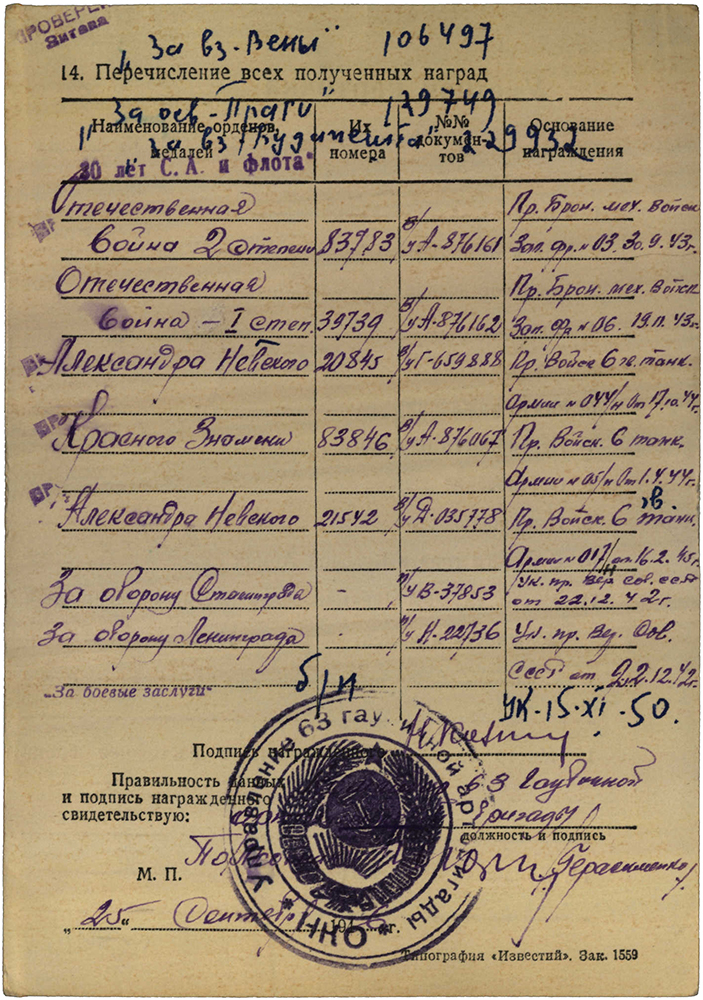 ПРОВЕРЕН
"За вз. Вены" 106497
14. Перечисление всех полученных наград
"За осв. Праги" 129749
Наименование орденов, медалей
Их номера
№№ документов
Основание награждения
"За вз. Будапешта" 229932
30 лет С. А. и флота"
Отечественная Пр. Брон. мех. Войск
Война 2 степени 83783 уА-876161 Зап. фр. № 03. 30. 9. 43г.
Отечественная Пр. Брон. мех. Войск
Война - I степ. 39739 уА-876162 Зап. фр № 06. 19.11. 43г.
Александра Невского 20845 уГ-659888 Пр. Войск 6 гв. танк.
Армии № 044/н От 17.10.44г.
Красного Знамени 83846 уА-876067 Пр. Войск. 6 танк.
Армии № 05/н От 1.4.44г.
Александра Невского 21542 уД-035778 Пр. Войск. 6 гв. танк.
Армии № 017/н от 16.2.45г.
За оборону Сталинграда - уВ-37853 Ук. пр. Вер сов. ссср
от 22.12.42г.
За оборону Ленинграда - уН-22736 Ук. пр. Вер. Сов.
СССР от 22.12.42г.
"За боевые заслуги" б/н УК-15-XI-50.
Подпись награжденного
Правильность данных 63 Гаубичной
и подпись награжденного
свидетельствую: бригады
должность и подпись
М. П. Герасименко
"25" Сентября 194 6 г.
Управление 63 гаубичной арт. бригады
Типография «Известий». Зак. 1559